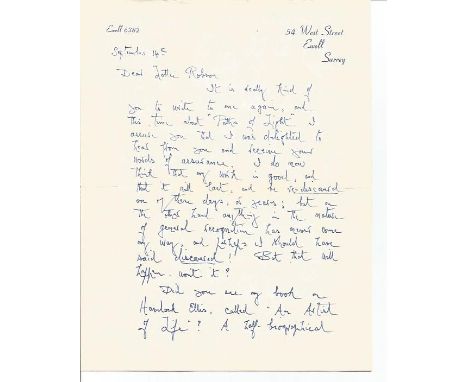 Ewell 6362
54 West Street
Ewell
Surrey
September 14th
Dear Father
It is really kind of
you to write to me again, and
this time about "Father of Light". I
assure you that I was delighted to
hear from you and receive your
words of assurance. I do now
think that my work is good, and
that it will last, and be re-discovered
one of these days, or years; but on
the other hand anything in the nature
of general recognition has never come
my way, and perhaps I should have
said discovered! But that will
happen won't it?
Did you see my book on
Havelock Ellis, called "An Artist
of Life"? A biographical